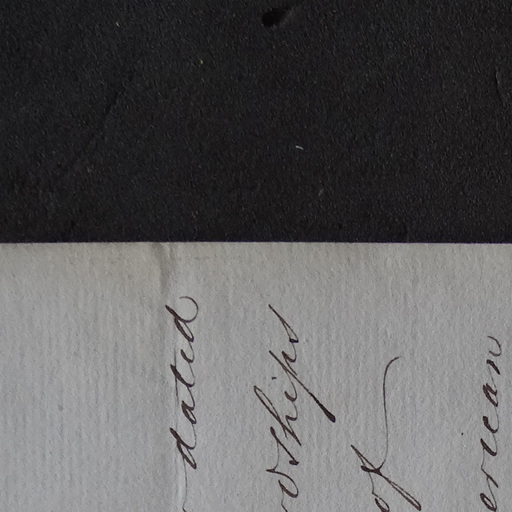 dated
oships
of
erican